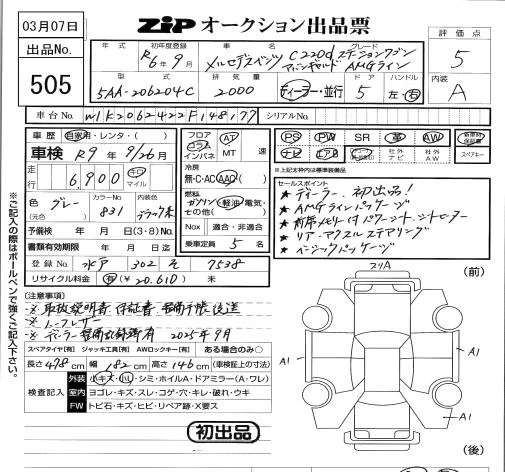 03月07日
ZIP オークション出品票
出品No.
505
年式
初年度登録
R6年9月
車名
メルセデスベンツ
C220d ステーションワゴン
アバンギャルド
グレード
AMGライン
型式
5AA-206204C
排気量
2000
ディーラー・並行
ドア
5
ハンドル
左・右
評価点
5
内装
A
車台No.
W1K2062422F148177
シリアルNo.
車歴
自家用・レンタ・( )
車検
R9年9/26月
走行
6,900
キロ
マイル
色
グレー
(元色)
カラーNo.
831
予備検 年 月 日(3・8)No.
書類有効期限 年 月 日
登録No.
水戸 302 そ 7538
リサイクル料金 有 (¥20.610) 未
フロア
コラム
インパネ
AT
MT
速
冷房
無・C・AC・AAC
燃料
ガソリン・軽油・電気・
その他( )
Nox 適合・非適合
乗車定員 5名
PS PW SR 革 AW
ナビ
エアB
社外
ナビ
社外
AW
スペアキー
※上記太枠内は標準装備品
セールスポイント
★ ディーラー 初出品!
★ AMGラインパッケージ
★ 前席メモリー付パワーシート、シートヒーター
★ リア・アクスルステアリング
★ ベーシックパッケージ
[注意事項]
※ 取扱説明書・保証書・整備手帳後送
※ ディーラー整備記録簿有 2025年9月
スペアタイヤ[有] ジャッキ工具[有] AWロックキー[有] ある場合のみ○
長さ478cm 幅182cm 高さ146cm (車検証上の寸法)
検査記入
外装 小キズ・凹・シミ・ホイルA・ドアミラー(A・ワレ)
室内 ヨゴレ・キズ・スレ・コゲ・穴・キレ・破れ・ウキ
FW トビ石・キズ・ヒビ・リペア跡・X要ス
初出品
スリA
(前)
A1
A1
A1
(後)
※ご記入の際はボールペンで強くご記入下さい。